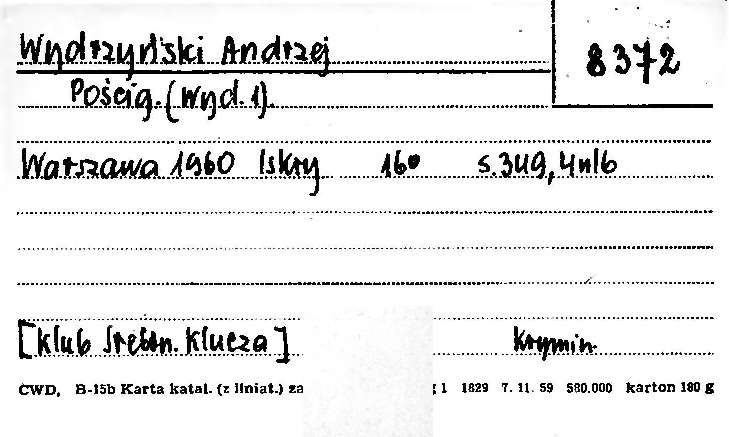 Wydrzyński Andrzej
8372
Pościg. (Wyd. 1).
Warszawa 1960 Iskry 16° s. 349, 4 nlb
[Klub Srebrn. Klucza] Krymin.
CWD, B-15b Karta katal. (z liniat.) za 1 1829 7. 11. 59 580.000 karton 180 g